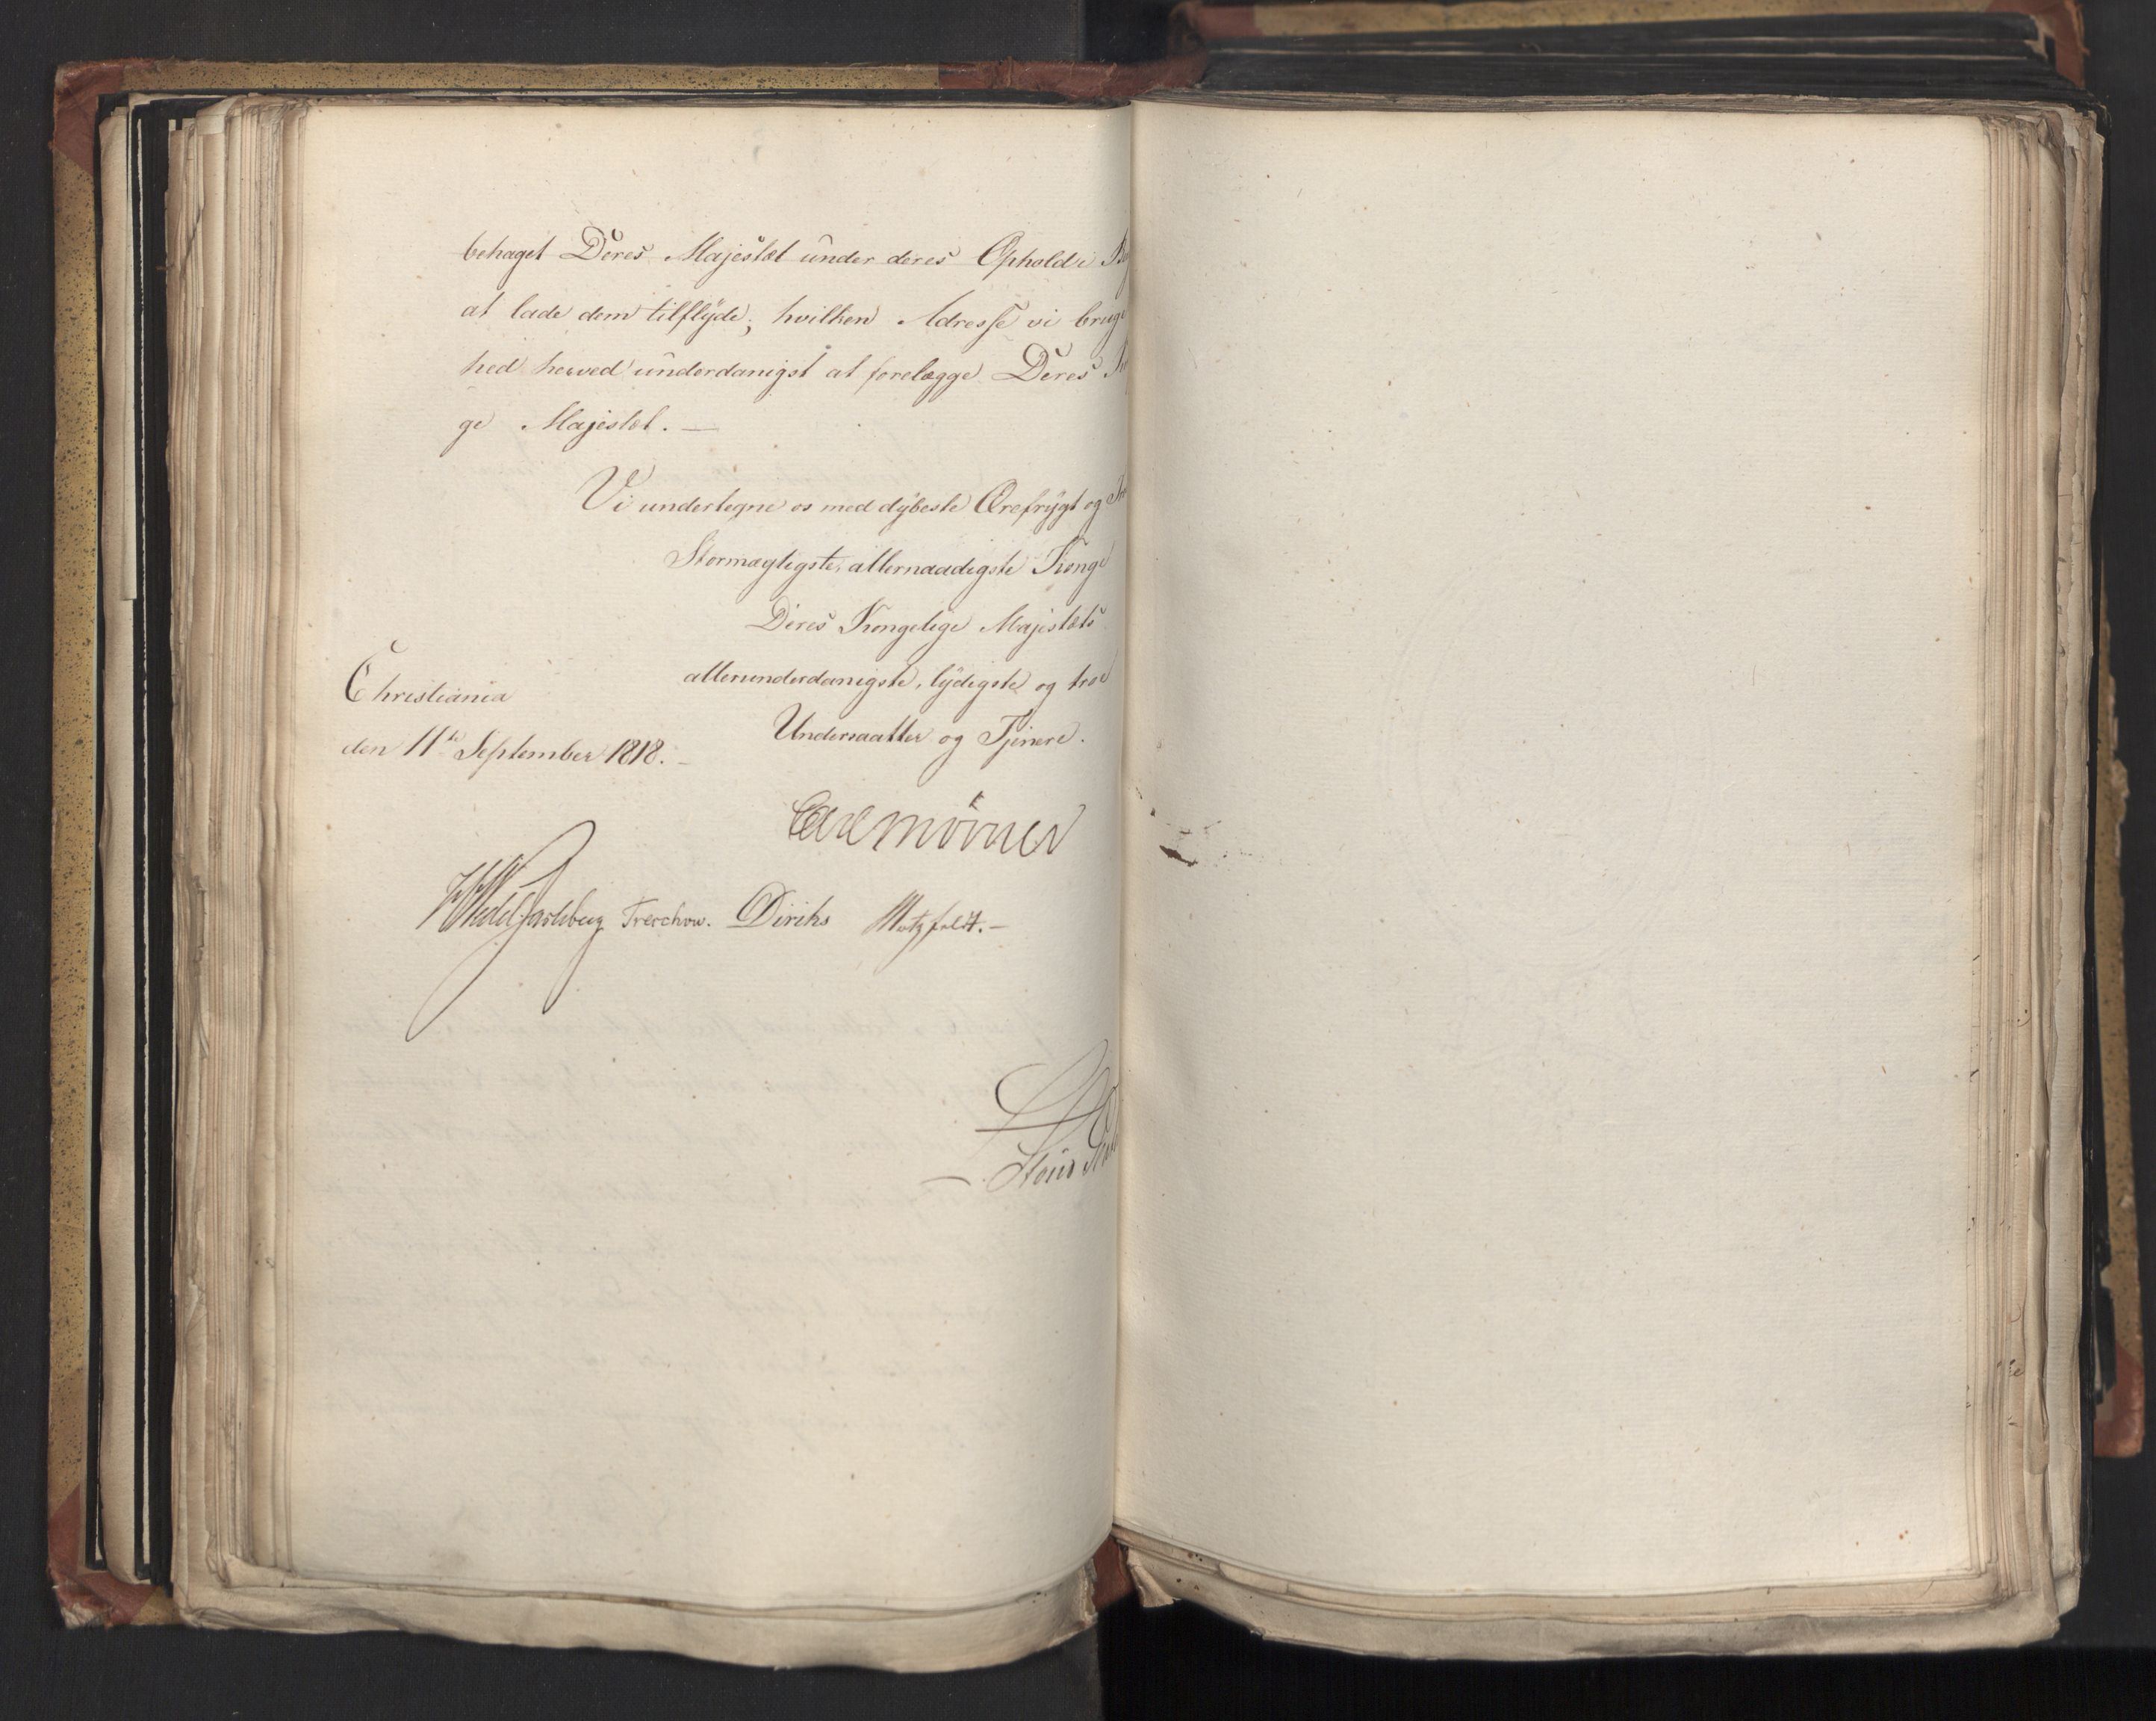 behaget Deres Majestæt under deres Ophold i
at lade dem tilflyde; hvilken Adresse vi
hed herved underdanigst at forelægge Deres
ge Majestæt. —
Vi undertegne os med dybeste Ærefrygt og
Stormægtigste, allernaadigste Konge
Deres Kongelige Majestæts
allerunderdanigste, lydigste og troe
Undersaatter og Tjenere.
Christiania
den 11te September 1818. –
Carl Mörner
Wedel Jarlsberg Treschow. Diriks Motzfeldt. –